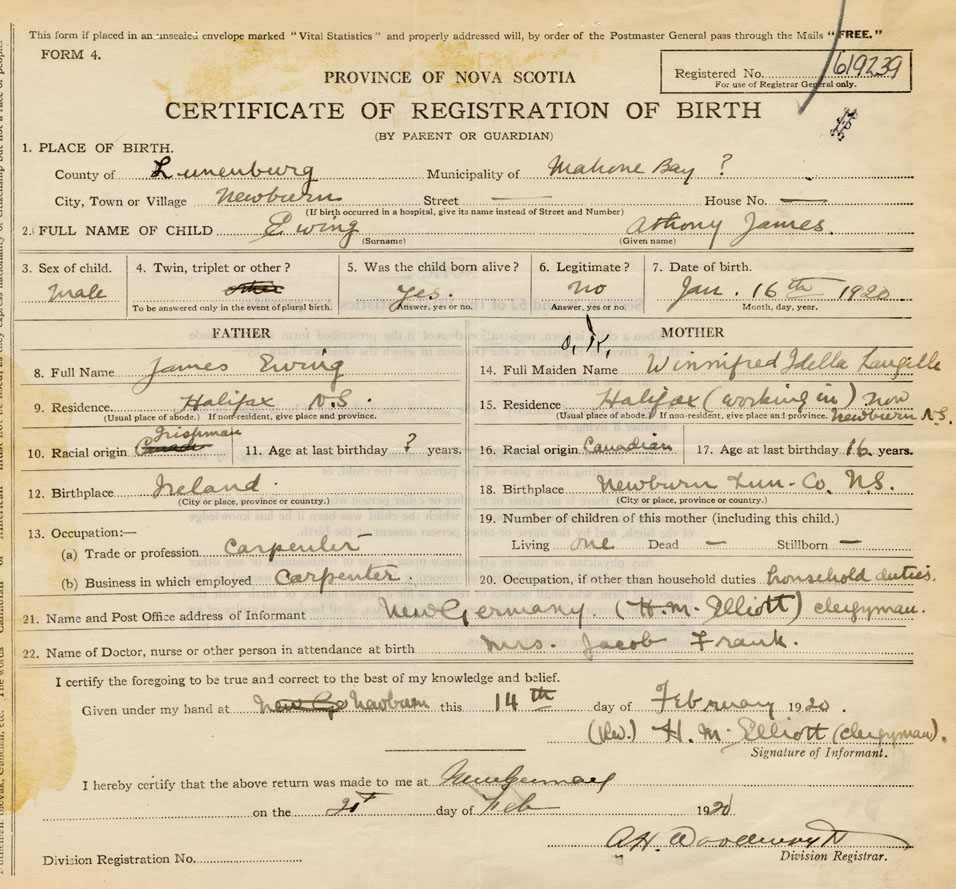 This form if placed in an unsealed envelope marked "Vital Statistics" and properly addressed will, by order of the Postmaster General pass through the Mails "FREE."
FORM 4.
Registered No. 619239
For use of Registrar General only.
PROVINCE OF NOVA SCOTIA
CERTIFICATE OF REGISTRATION OF BIRTH
(BY PARENT OR GUARDIAN)
1. PLACE OF BIRTH.
County of Lunenburg Municipality of Mahone Bay ?
City, Town or Village Newburn Street — House No. —
(If birth occurred in a hospital, give its name instead of Street and Number)
2. FULL NAME OF CHILD Ewing Athony James
(Surname) (Given name)
3. Sex of child. 4. Twin, triplet or other? 5. Was the child born alive? 6. Legitimate? 7. Date of birth.
Male other yes. no Jan. 16th 1920
To be answered only in the event of plural birth. Answer, yes or no. Answer, yes or no. Month, day, year.
FATHER MOTHER
O.K.
8. Full Name James Ewing 14. Full Maiden Name Winnifred Idella Langille
9. Residence Halifax N.S. 15. Residence Halifax (working in) now Newburn N.S.
(Usual place of abode.) If non-resident, give place and province. (Usual place of abode.) If non-resident, give place and province.
Irishman
10. Racial origin 11. Age at last birthday ? years. 16. Racial origin Canadian 17. Age at last birthday 16 years.
12. Birthplace Ireland. 18. Birthplace Newburn Lun-Co. N.S.
(City or place, province or country.) (City or place, province or country.)
13. Occupation:— 19. Number of children of this mother (including this child.)
(a) Trade or profession Carpenter Living one Dead — Stillborn —
(b) Business in which employed Carpenter. 20. Occupation, if other than household duties household duties.
21. Name and Post Office address of Informant New Germany. (H.M. Elliott) clergyman.
22. Name of Doctor, nurse or other person in attendance at birth Mrs. Jacob Frank.
I certify the foregoing to be true and correct to the best of my knowledge and belief.
Given under my hand at New Ge Newburn this 14th day of February 1920.
(Rev.) H. M. Elliott (clergyman).
Signature of Informant.
I hereby certify that the above return was made to me at New Germany
on the day of Feb 1920
A.H.
Division Registration No. Division Registrar.